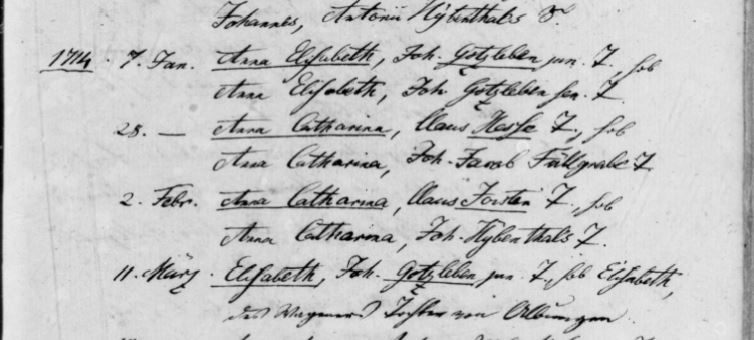 Johannes, Antonii Hÿbenthals S.
1714. 7. Jan. Anna Elisabeth, Joh. Gotzleben jun. T. hob
Anna Elisabeth, Joh. Gotzleben sen. T.
28. — Anna Catharina, Claus Hesse T., hob
Anna Catharina, Joh. Jacob Füllgrabe T.
2. Febr. Anna Catharina, Claus Torsten T., hob
Anna Catharina, Joh. Hÿbenthals T.
11. März. Elisabeth, Joh. Gotzleben jun. T., hob Elisabeth,
des Wagners Tochter von Albungen.